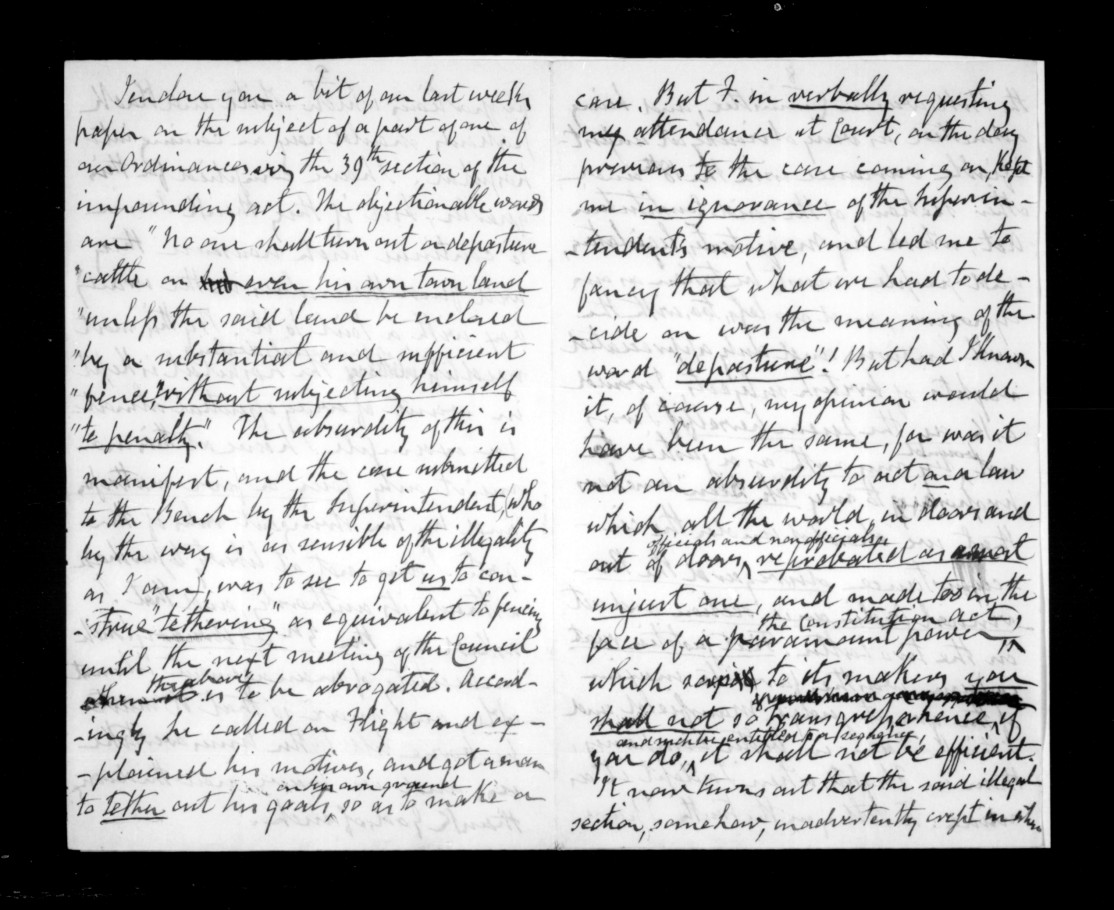 I endose you a bit of our last week's
paper on the subject of a part of one of
our Ordinances viz the 39th section of the
impounding act. The objectionable words
are "No one shall turn out or depasture
"cattle on even his own town land
"unless the said land be enclosed
"by a substantial and sufficient
"fence" without subjecting himself
"to penalty." The absurdity of this is
manifest, and the case submitted
to the Bench by the Superintendent, (who
by the way is as sensible of the illegality
as I am, was to see to get us to con-
-strue "tethering" as equivalent to fencing
until the next meeting of the Council
the above is to be abrogated. Accord-
-ingly he called on Flight and ex-
-plained his motives, and got a man
on his own ground
to tether out his goats, so as to make a
case. But F. in verbally requesting
my attendance at Court, on the day
previous to the case coming on, kept
me in ignorance of the Superin-
-tendent's motive, and led me to
fancy that what we had to de-
-cide on was the meaning of the
word "depasture"! But had I known
it, of course, my opinion would
have been the same, for was it
not an absurdity to act on a law
which all the world, in doors and
officials and non officials
out of doors, reprobated as
unjust one, and made too in the
the constitution act,
face of a paramount power
which says to its makers you
shall not so transgress, hence, if
you do, it shall not be efficient.
It now turns out that the said illegal
section, somehow, inadvertently crept in when